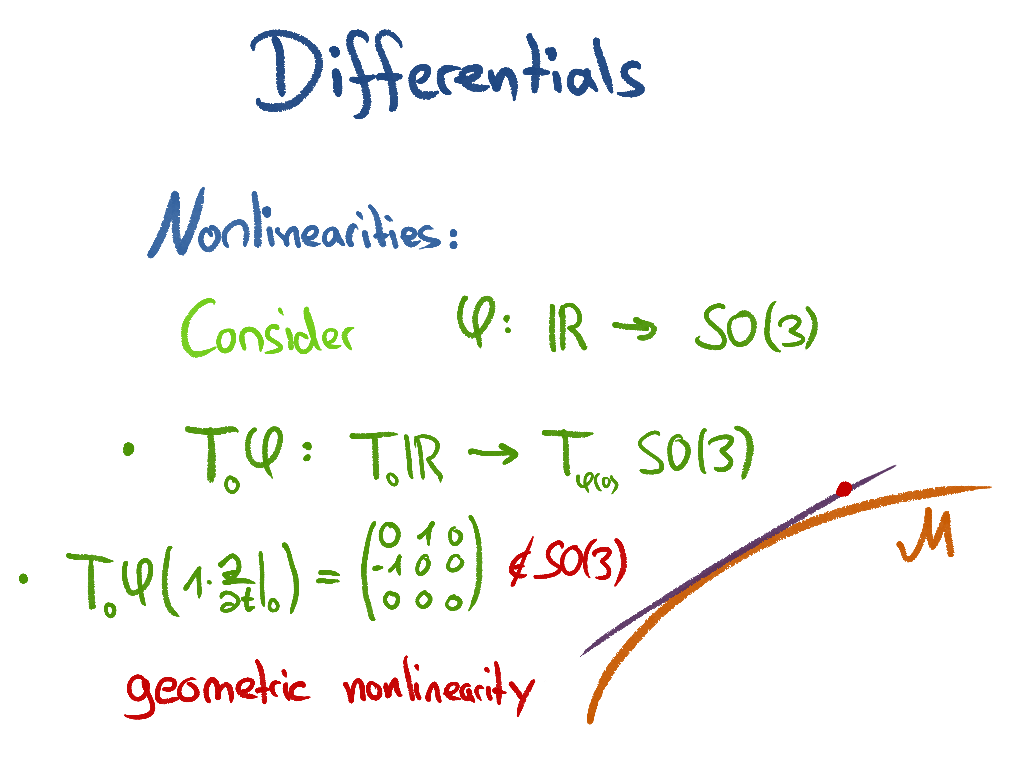 Differentials
Nonlinearities:
Consider φ: ℝ → SO(3)
• T₀φ: T₀ℝ → T_φ(0) SO(3)
• T₀φ(1·∂/∂t|₀) = (0 1 0
-1 0 0
0 0 0) ∉ SO(3)
M
geometric nonlinearity